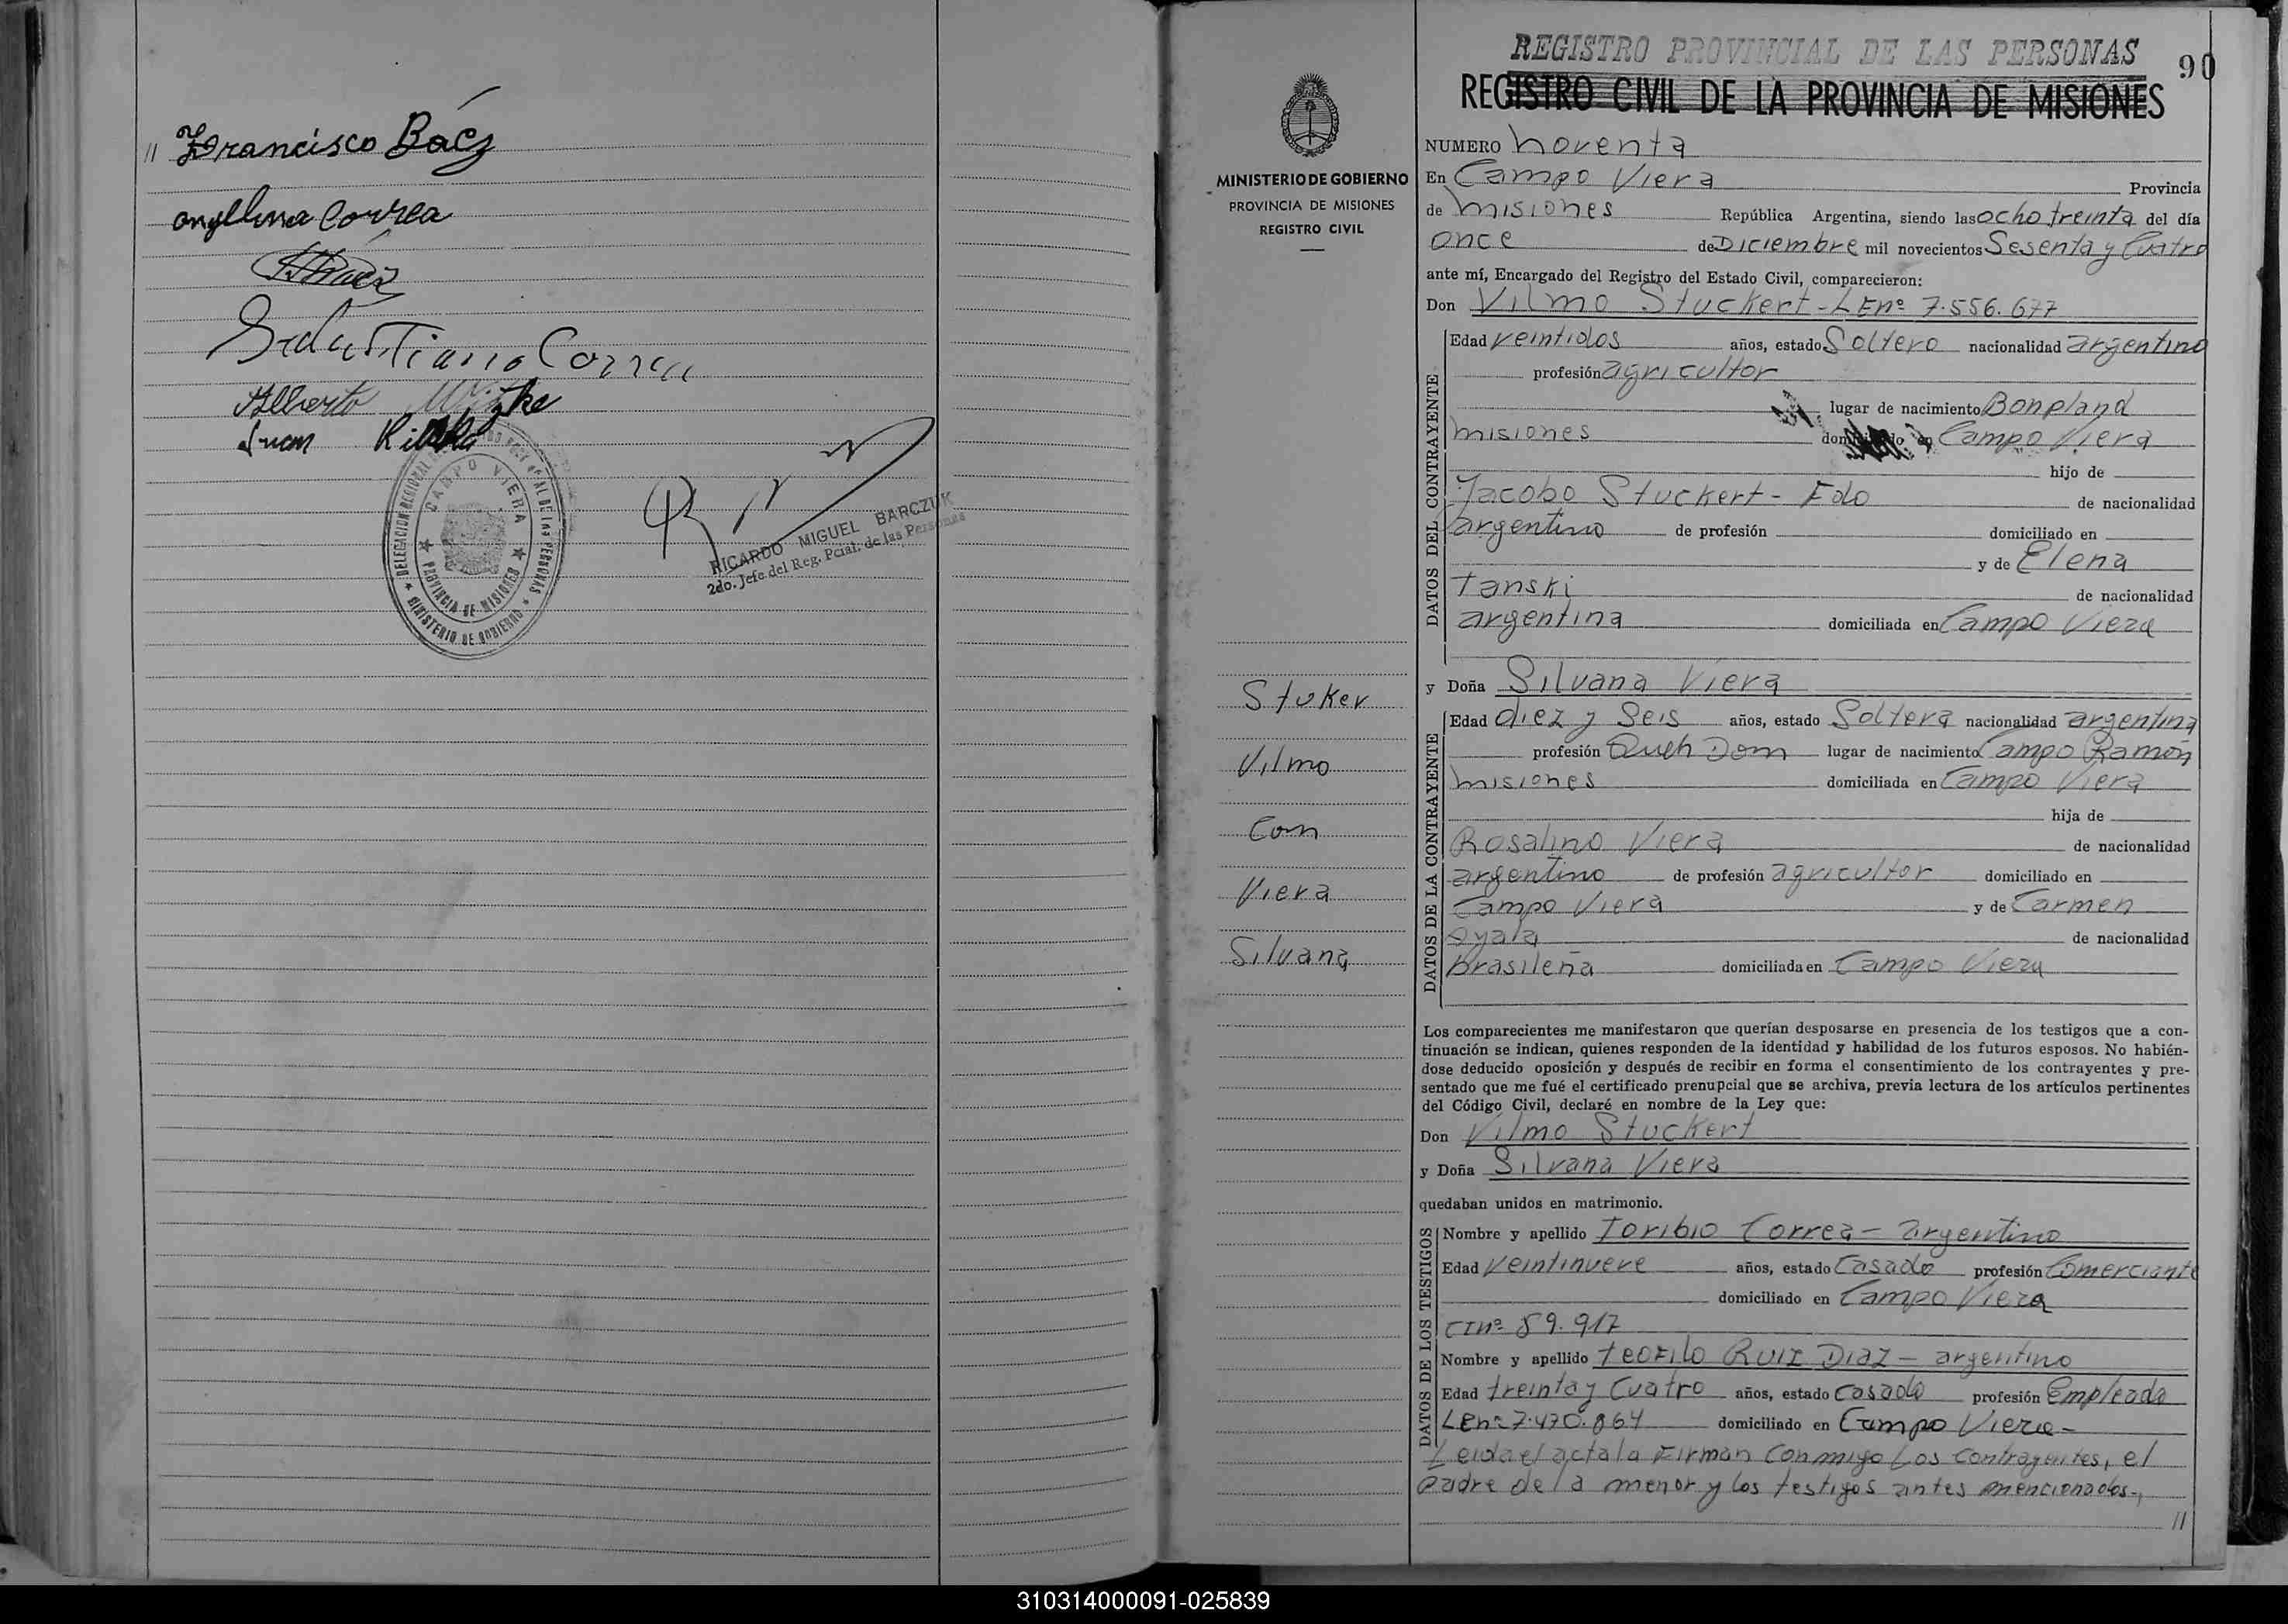 // Francisco Báez
Angelina Correa
Sebastiana Correa
Alberto Witzke
Juan
RICARDO MIGUEL BARCZUK
2do. Jefe del Reg. Pcial. de las Personas
CAMPO VIERA
PROVINCIA DE MISIONES
MINISTERIO DE GOBIERNO
REGISTRO PROVINCIAL DE LAS PERSONAS
90
REGISTRO CIVIL DE LA PROVINCIA DE MISIONES
MINISTERIO DE GOBIERNO
PROVINCIA DE MISIONES
REGISTRO CIVIL
Stuker
Vilmo
Con
Viera
Silvana
NUMERO noventa
En Campo Viera Provincia
de misiones República Argentina, siendo las ocho treinta del día
once de Diciembre mil novecientos Sesenta y Cuatro
ante mí, Encargado del Registro del Estado Civil, comparecieron:
Don Vilmo Stuckert - LEnº 7.556.677
DATOS DEL CONTRAYENTE
Edad veintidos años, estado Soltero nacionalidad argentino
profesión agricultor
lugar de nacimiento Bonpland
misiones domiciliado en Campo Viera
hijo de
Jacobo Stuckert - Fdo de nacionalidad
argentino de profesión domiciliado en
y de Elena
Tanski de nacionalidad
argentina domiciliada en Campo Viera
y Doña Silvana Viera
DATOS DE LA CONTRAYENTE
Edad diez y Seis años, estado Soltera nacionalidad argentina
profesión Queh Dom lugar de nacimiento Campo Ramón
misiones domiciliada en Campo Viera
hija de
Rosalino Viera de nacionalidad
argentino de profesión agricultor domiciliado en
Campo Viera y de Carmen
Ayala de nacionalidad
brasileña domiciliada en Campo Viera
Los comparecientes me manifestaron que querían desposarse en presencia de los testigos que a con-
tinuación se indican, quienes responden de la identidad y habilidad de los futuros esposos. No habién-
dose deducido oposición y después de recibir en forma el consentimiento de los contrayentes y pre-
sentado que me fué el certificado prenupcial que se archiva, previa lectura de los artículos pertinentes
del Código Civil, declaré en nombre de la Ley que:
Don Vilmo Stuckert
y Doña Silvana Viera
quedaban unidos en matrimonio.
DATOS DE LOS TESTIGOS
Nombre y apellido Toribio Correa - argentino
Edad veintinueve años, estado Casado profesión Comerciante
domiciliado en Campo Viera
CInº 59.917
Nombre y apellido Teofilo Ruiz Diaz - argentino
Edad treinta y Cuatro años, estado casado profesión Empleado
LEnº 7.470.864 domiciliado en Campo Viera -
Leida el acta la Firman Conmigo Los Contrayentes, el
Padre de la menor y los testigos antes mencionados.-
//
310314000091-025839